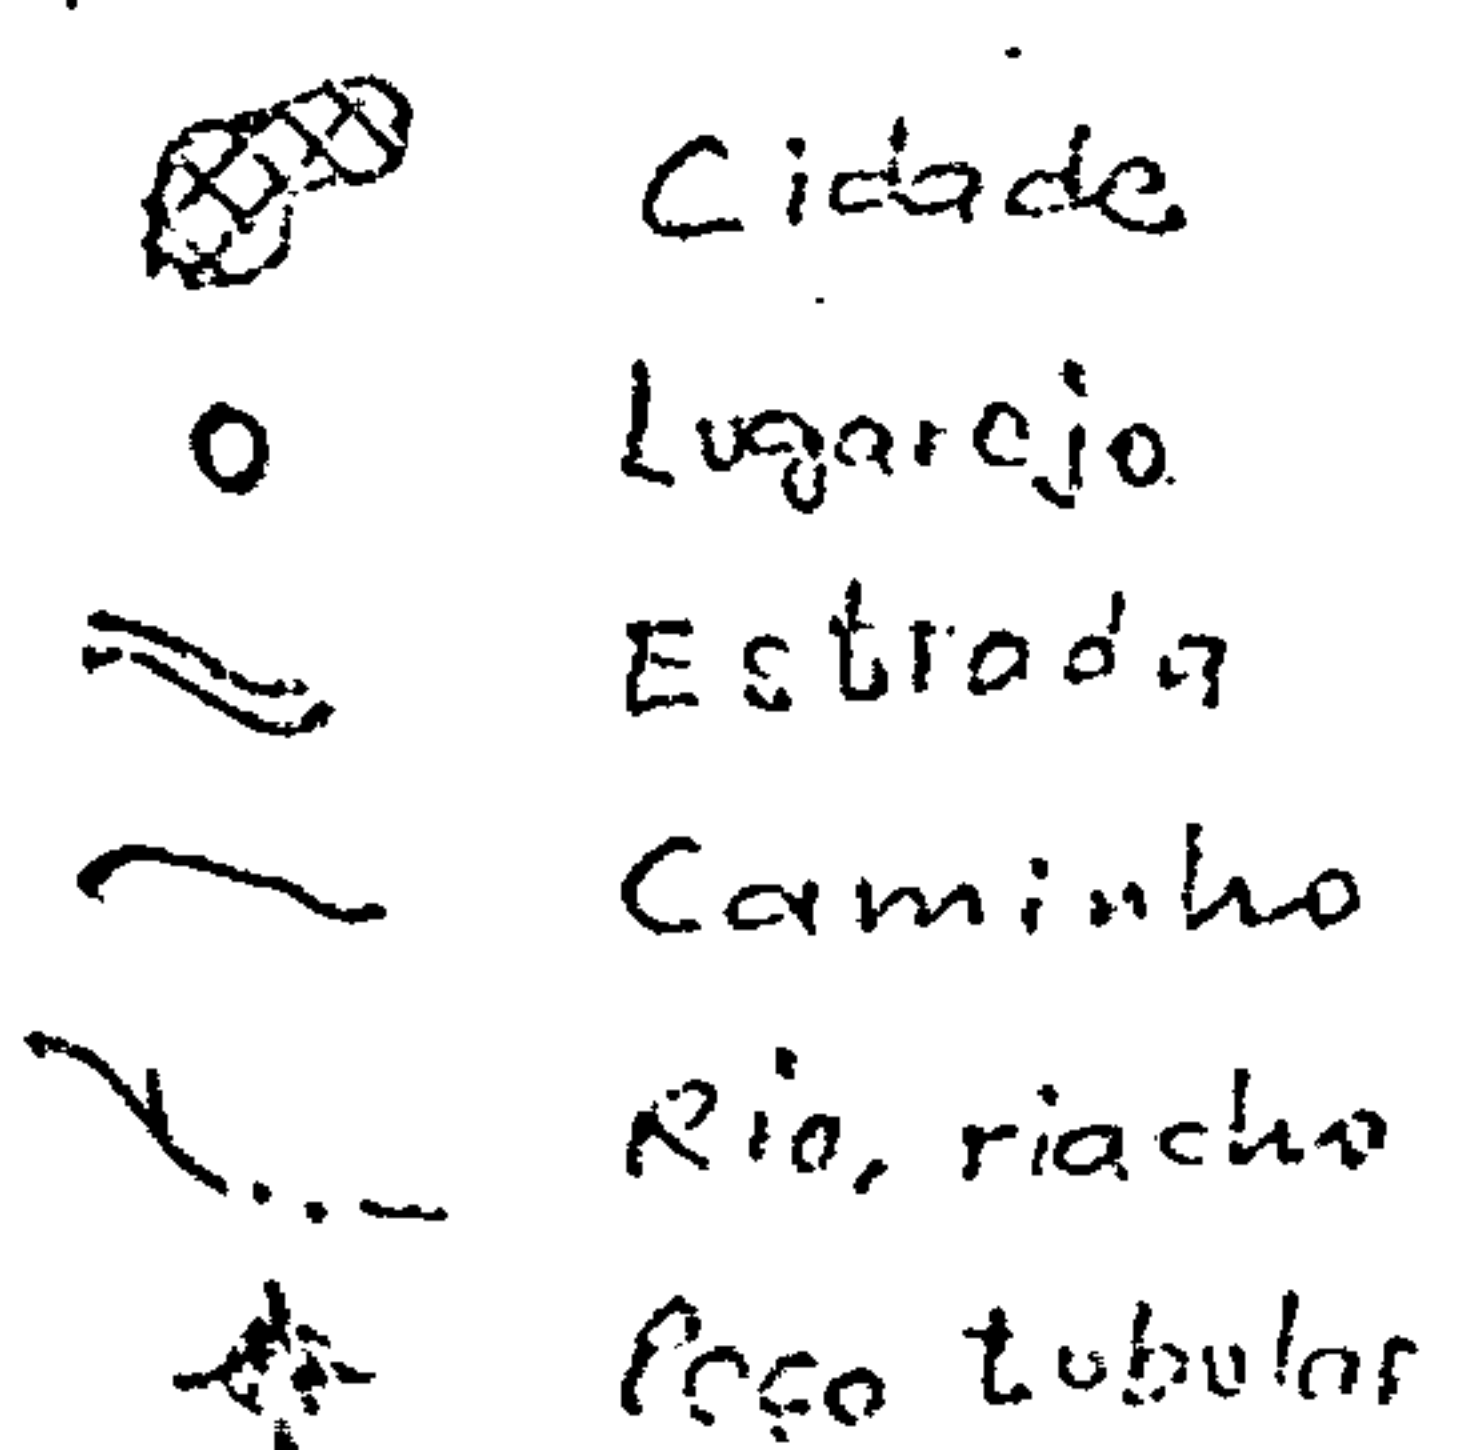 Cidade
Lugarejo
Estrada
Caminho
Rio, riacho
Poço tubular